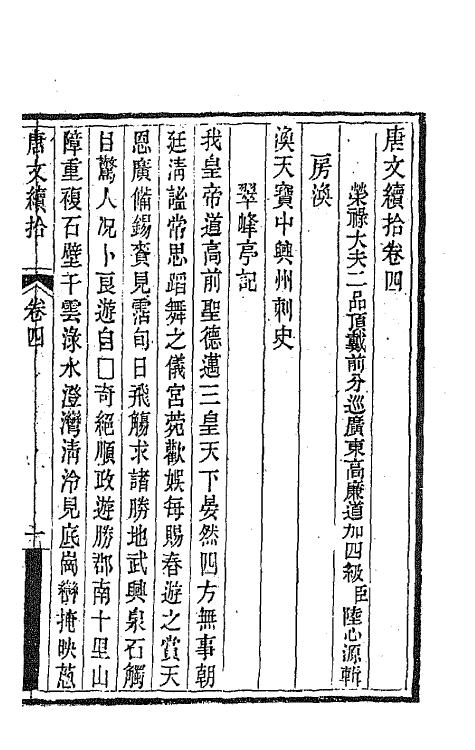 唐文續拾卷四
榮祿大夫二品頂戴前分巡廣東高廉道加四級臣陸心源輯
房渙
渙天寶中興州刺史
翠峰亭記
我皇帝道高前聖德邁三皇天下晏然四方無事朝
廷淸謐常思蹈舞之儀宮菀歡娛每賜春遊之賞天
恩廣備錫賚見霑旬日飛觴求諸勝地武興泉石觸
目驚人况卜良遊自□奇絕順政遊勝郡南十里山
障重複石壁千雲淥水澄灣淸泠見底崗巒掩映蔥
唐文續拾 卷四 一